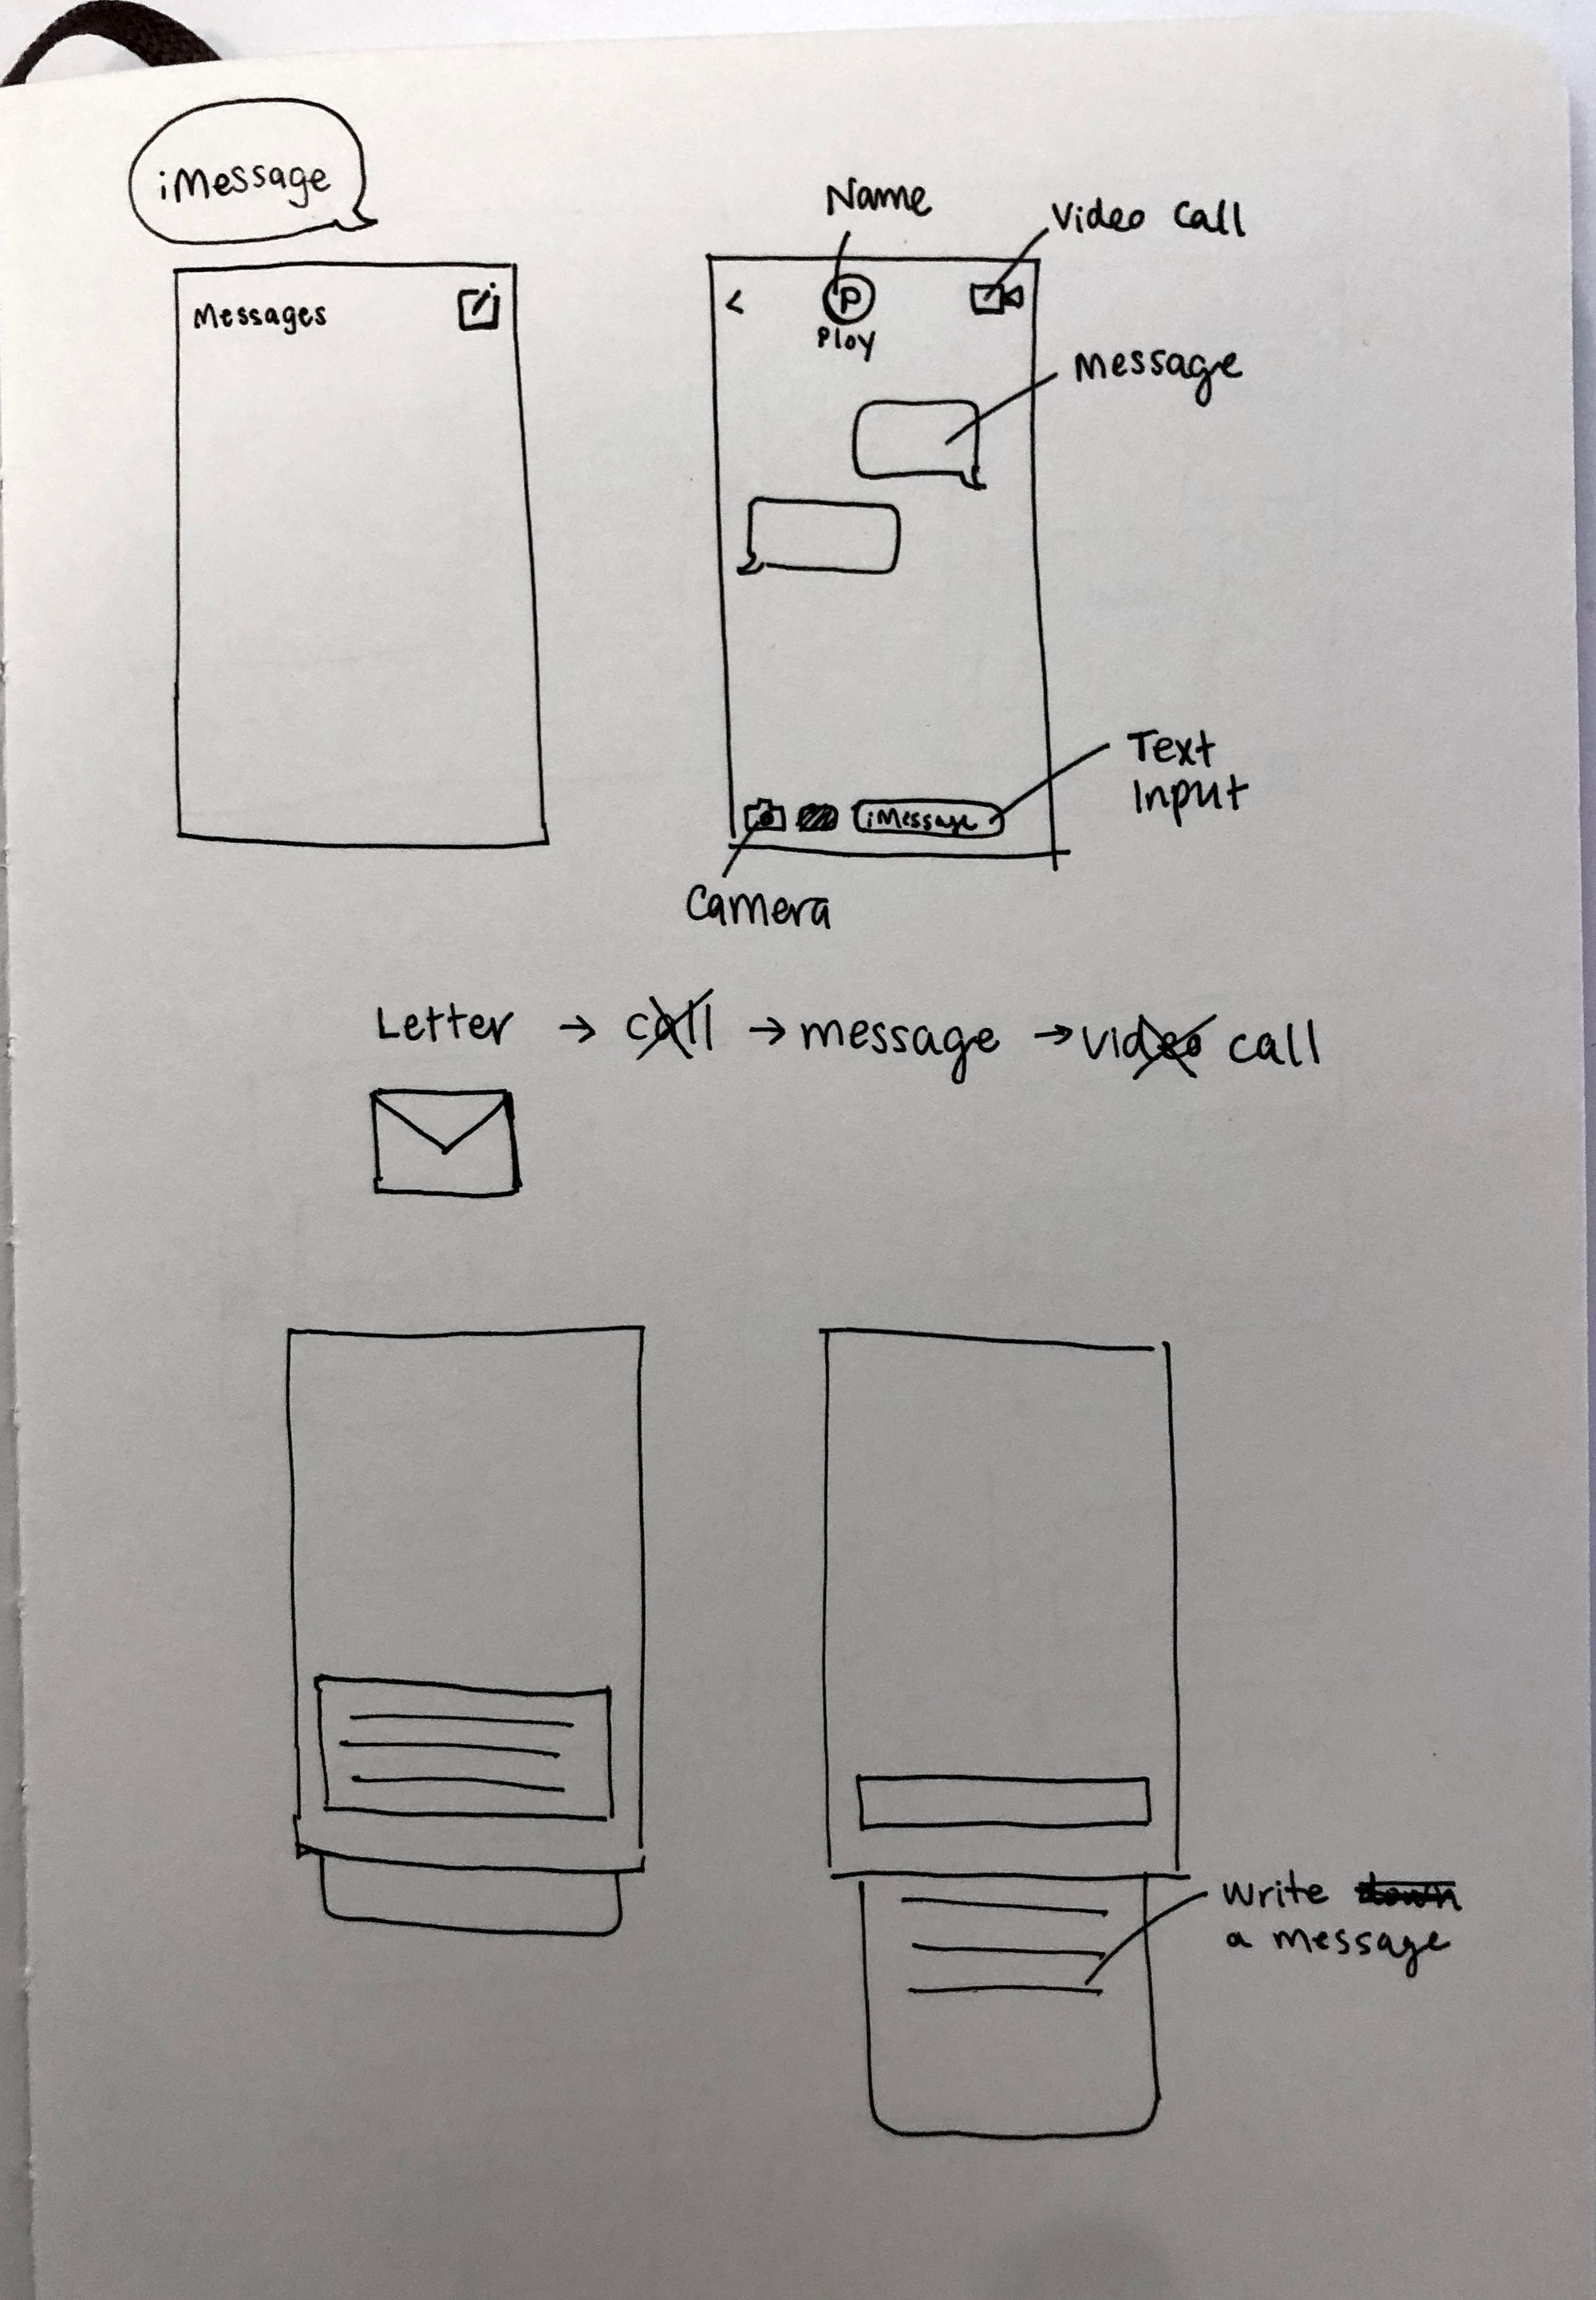 iMessage
Name
Video Call
Messages
<
P
Ploy
Message
Text
Input
iMessage
Camera
Letter → call → message → video call
Write down
a message